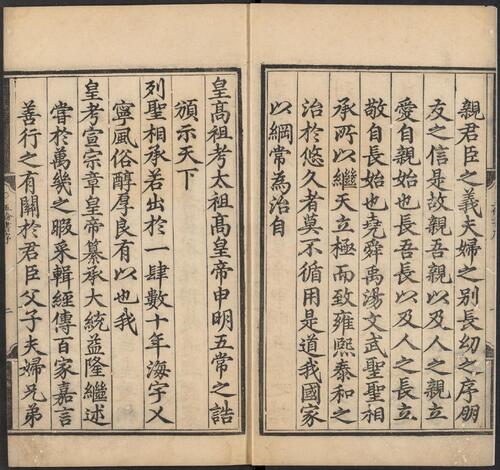 親君臣之義夫婦之别長幼之序朋
友之信是故親吾親以及人之親立
愛自親始也長吾長以及人之長立
敬自長始也堯舜禹湯文武聖聖相
承所以繼天立極而致雍熙泰和之
治於悠久者莫不循用是道我國家
以綱常為治自
皇髙祖考太祖髙皇帝申明五常之誥
頒示天下
列聖相承若出於一肆數十年海宇乂
寧風俗醇厚良有以也我
皇考宣宗章皇帝纂承大統益隆繼述
甞於萬幾之暇采輯經傳百家嘉言
善行之有關於君臣父子夫婦兄弟